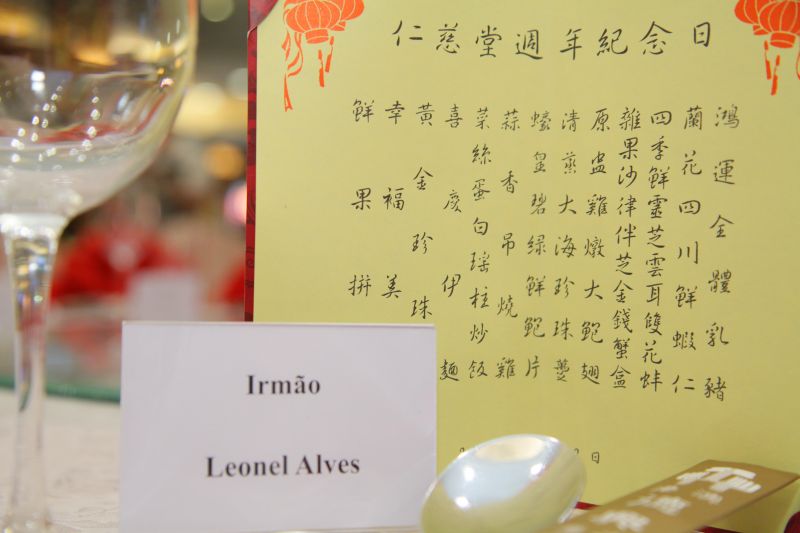 仁慈堂週年紀念日
鴻運全體乳豬
蘭花四川鮮蝦仁
四季鮮靈芝雲耳雙花蚌
雜果沙律伴芝金錢蟹盒
原盅雞燉大鮑翅
清蒸大海珍珠躉
蠔皇碧綠鮮鮑片
蒜香吊燒雞
菜絲蛋白瑤柱炒飯
喜慶伊麵
黃金珍珠
幸福美
鮮果拼
日
Irmão
Leonel Alves